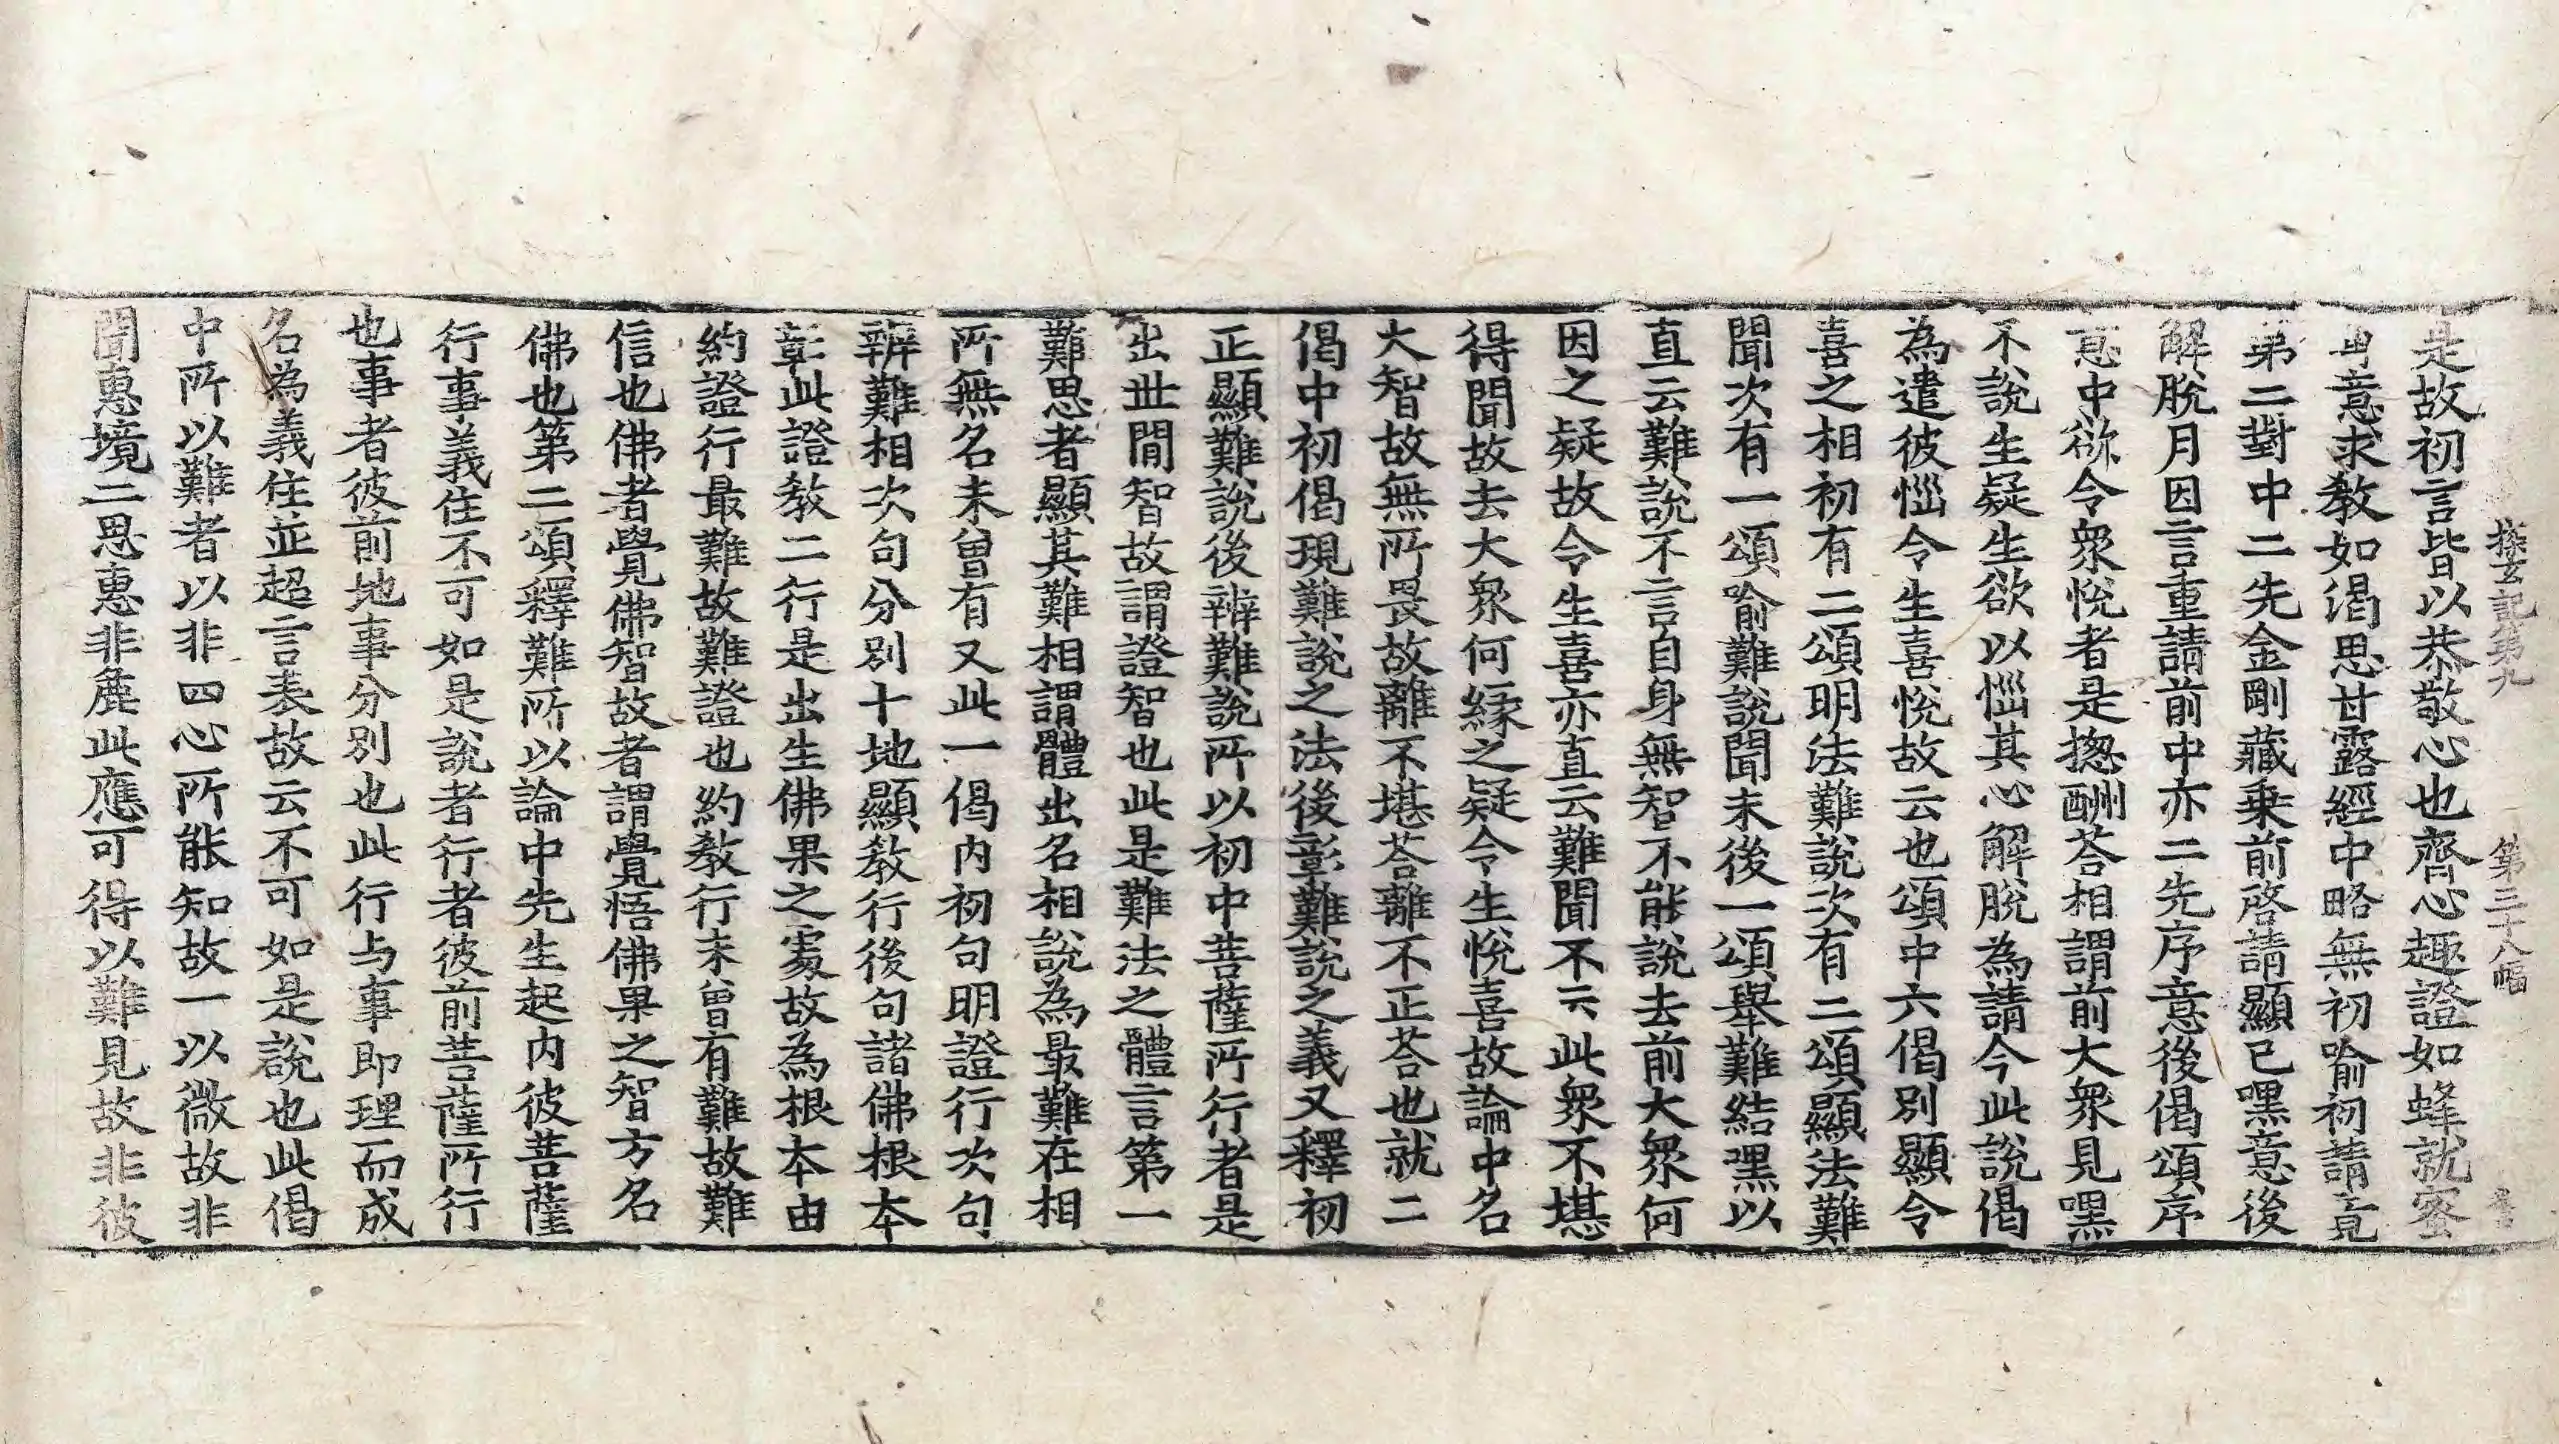 探玄記第九 第三十八幅
是故初言皆以恭敬心也齊心趣證如蜂就蜜
意求教如渴思甘露經中略無初喻初請竟
第二對中二先金剛藏乗前啓請顯已嘿意後
解脫月因言重請前中亦二先序意後偈頌序
意中欲令衆悅者是揔酬荅相謂前大衆見嘿
不說生疑生欲以惱其心解脫為請今此說偈
為遣彼惱令生喜悅故云也頌中六偈別顯令
喜之相初有二頌明法難說次有二頌顯法難
聞次有一頌喻難說聞末後一頌舉難結嘿以
直云難說不言自身無智不能說去前大衆何
因之疑故令生喜亦直云難聞不云此衆不堪
得聞故去大衆何緣之疑令生悅喜故論中名
大智故無所畏故離不堪荅離不正荅也就二
偈中初偈現難說之法後彰難說之義又釋初
正顯難說後辨難說所以初中菩薩所行者是
出世間智故謂證智也此是難法之體言第一
難思者顯其難相謂體出名相說為最難在相
所無名未曾有又此一偈內初句明證行次句
辨難相次句分別十地顯教行後句諸佛根本
彰此證教二行是出生佛果之處故為根本由
約證行最難故難證也約教行未曾有難故難
信也佛者覺佛智故者謂覺悟佛果之智方名
佛也第二頌釋難所以論中先生起內彼菩薩
行事義住不可如是說者行者彼前菩薩所行
也事者彼前地事分別也此行与事即理而成
名為義住並超言表故云不可如是說也此偈
中所以難者以非四心所能知故一以微故非
聞惠境二思惠非麁此應可得以難見故非彼